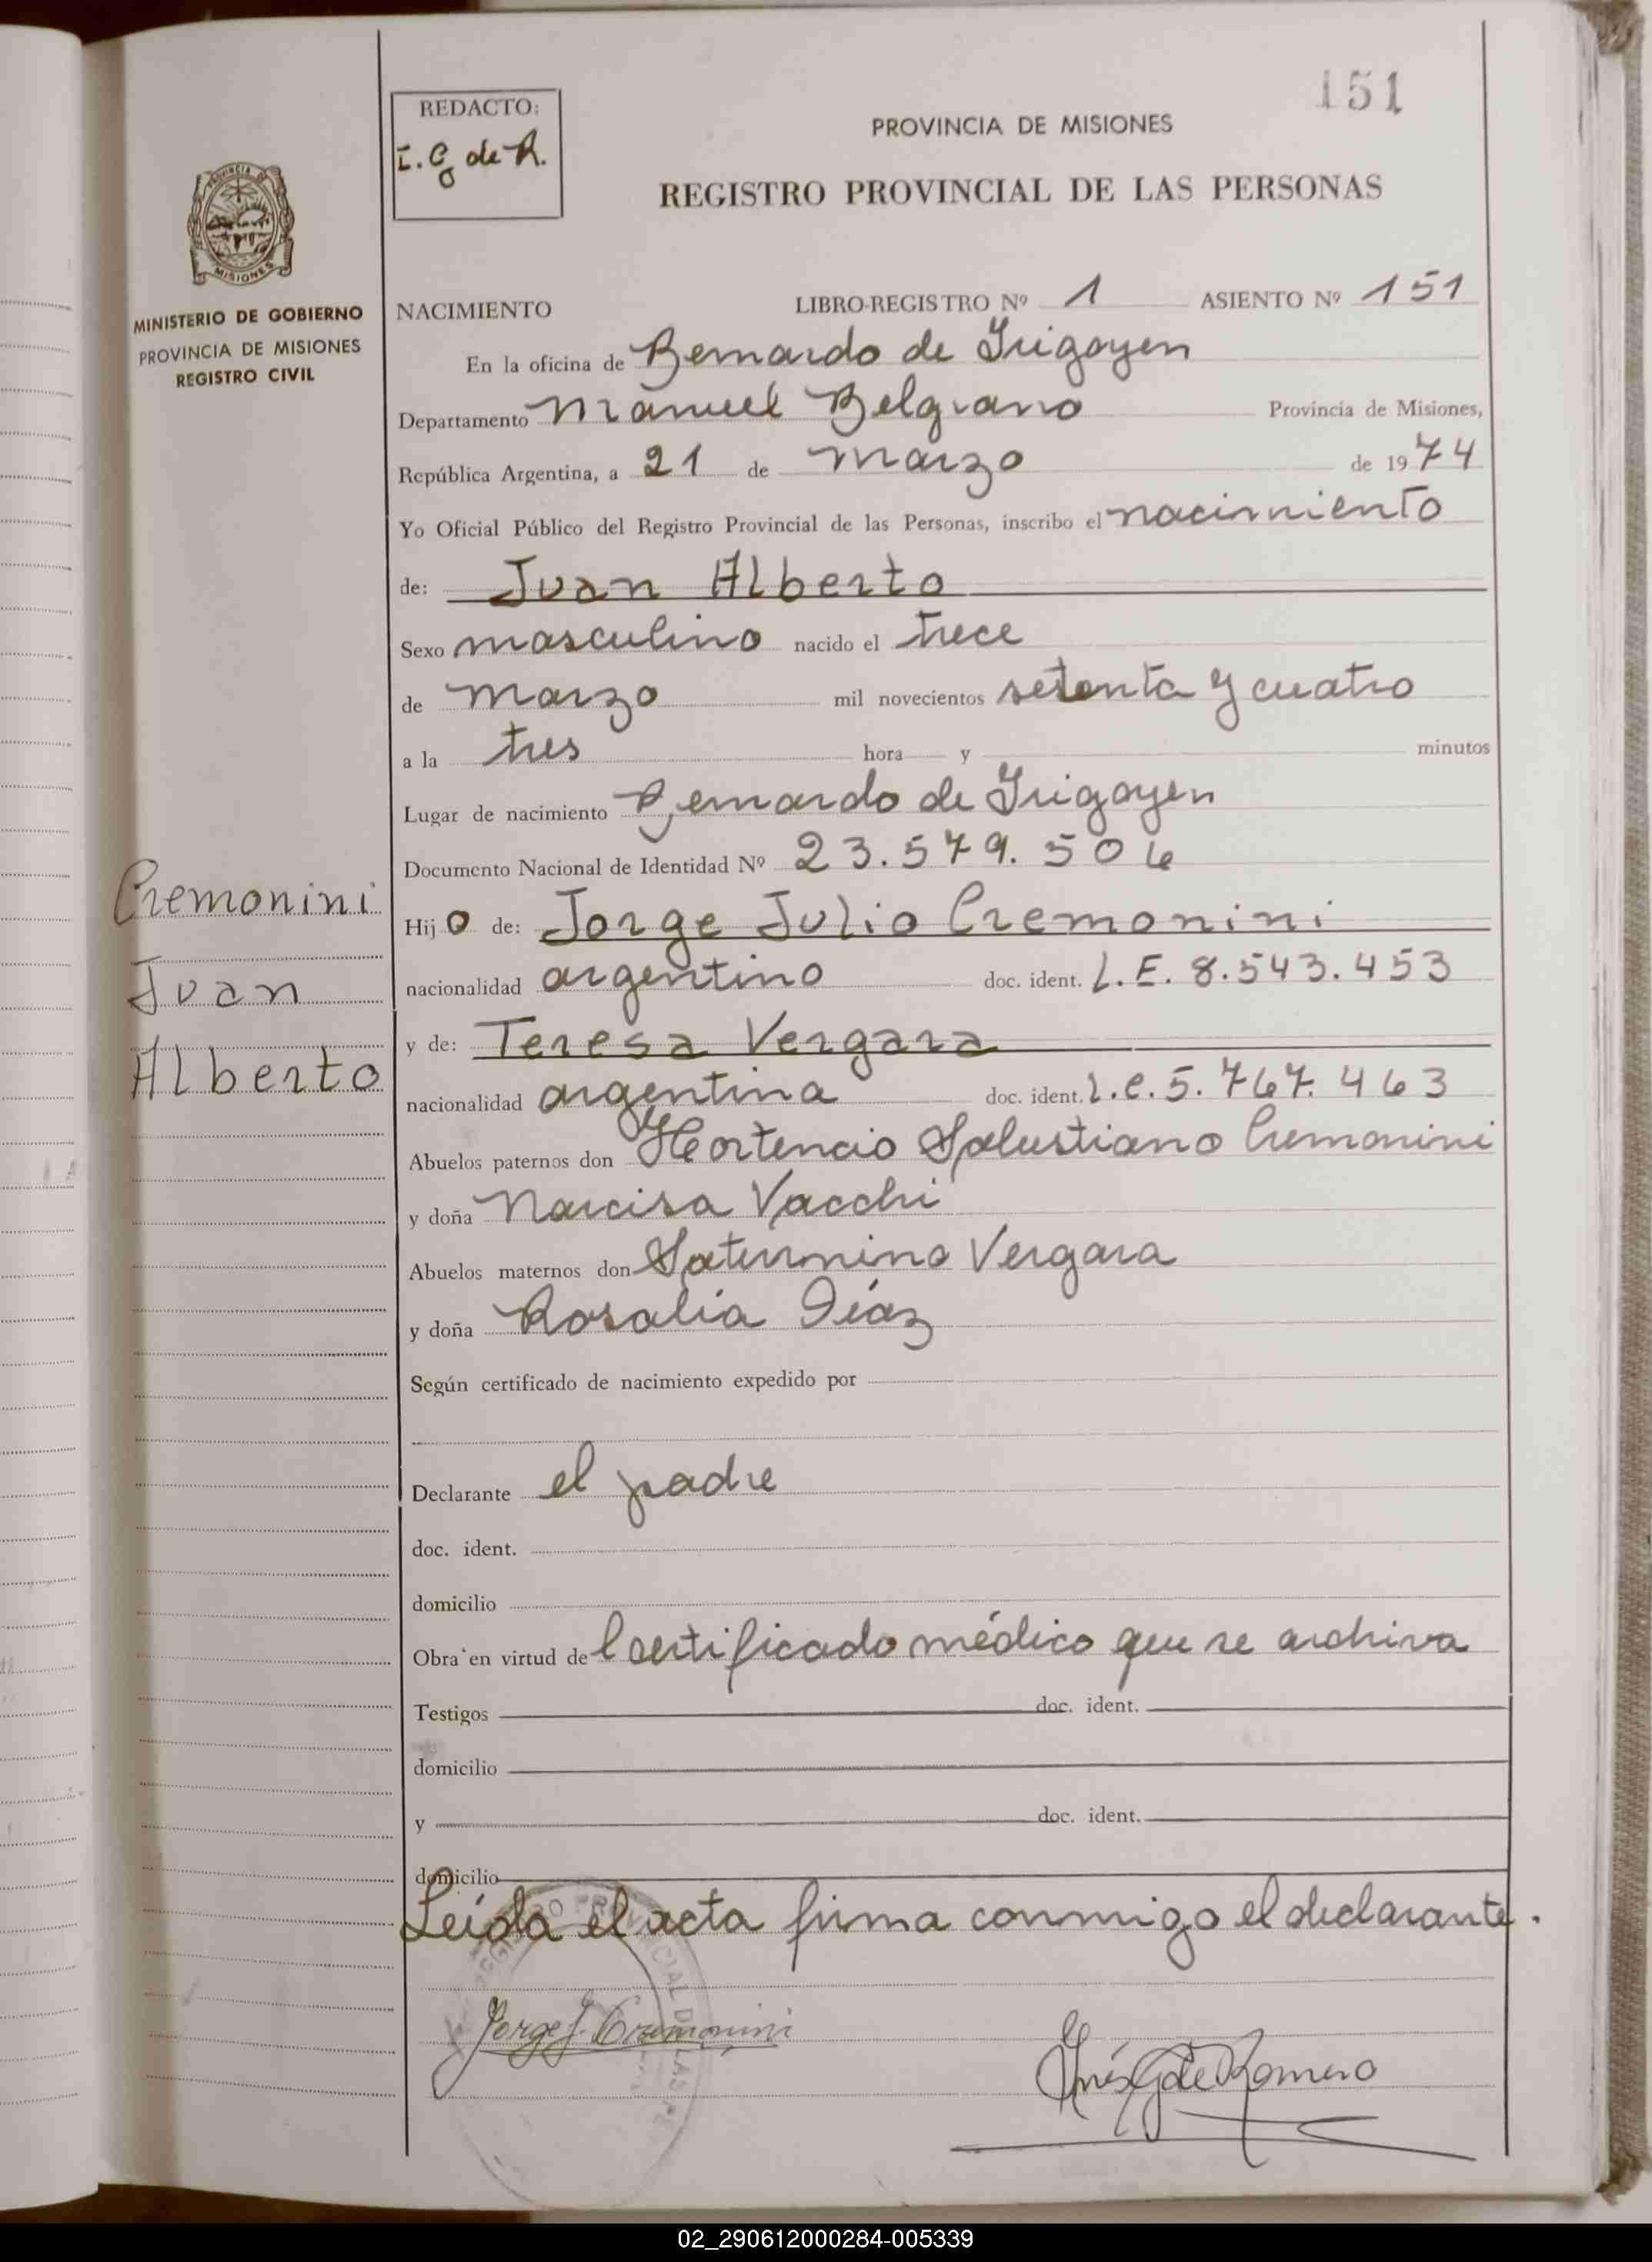 151
REDACTO:
I. G de R.
PROVINCIA DE MISIONES
REGISTRO PROVINCIAL DE LAS PERSONAS
MISIONES
MINISTERIO DE GOBIERNO
PROVINCIA DE MISIONES
REGISTRO CIVIL
NACIMIENTO LIBRO-REGISTRO Nº 1 ASIENTO Nº 151
En la oficina de Bernardo de Irigoyen
Departamento Manuel Belgrano Provincia de Misiones,
República Argentina, a 21 de marzo de 1974
Yo Oficial Público del Registro Provincial de las Personas, inscribo el nacimiento
de: Juan Alberto
Sexo masculino nacido el trece
de marzo mil novecientos setenta y cuatro
a la tres hora y minutos
Lugar de nacimiento Bernardo de Irigoyen
Documento Nacional de Identidad Nº 23.579.506
Cremonini
Juan
Alberto
Hijo de: Jorge Julio Cremonini
nacionalidad argentino doc. ident. L.E. 8.543.453
y de: Teresa Vergara
nacionalidad argentina doc. ident. L.C. 5.767.463
Abuelos paternos don Hortencio Salustiano Cremonini
y doña Narcisa Vacchi
Abuelos maternos don Saturnino Vergara
y doña Rosalía Díaz
Según certificado de nacimiento expedido por
Declarante el padre
doc. ident.
domicilio
Obra en virtud de Certificado médico que se archiva
Testigos doc. ident.
domicilio
y doc. ident.
domicilio
Leída el acta firma conmigo el declarante.
Jorge J. Cremonini
Inés G de Romero
02_290612000284-005339